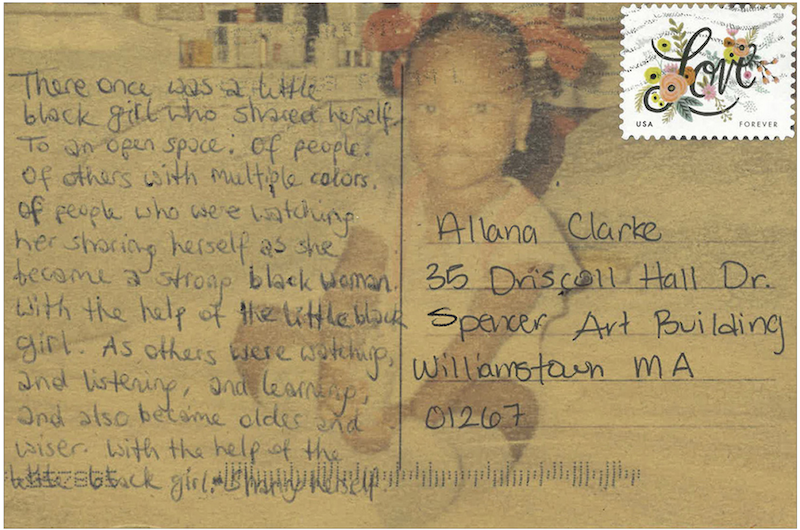 There once was a little
black girl who shared herself.
To an open space. Of people.
Of others with multiple colors.
Of people who were watching
her sharing herself as she
became a strong black woman.
With the help of the little black
girl. As others were watching,
and listening, and learning,
and also became older and
wiser. With the help of the
little black girl. Sharing herself.
Love
USA FOREVER
Allana Clarke
35 Driscoll Hall Dr.
Spencer Art Building
Williamstown MA
01267